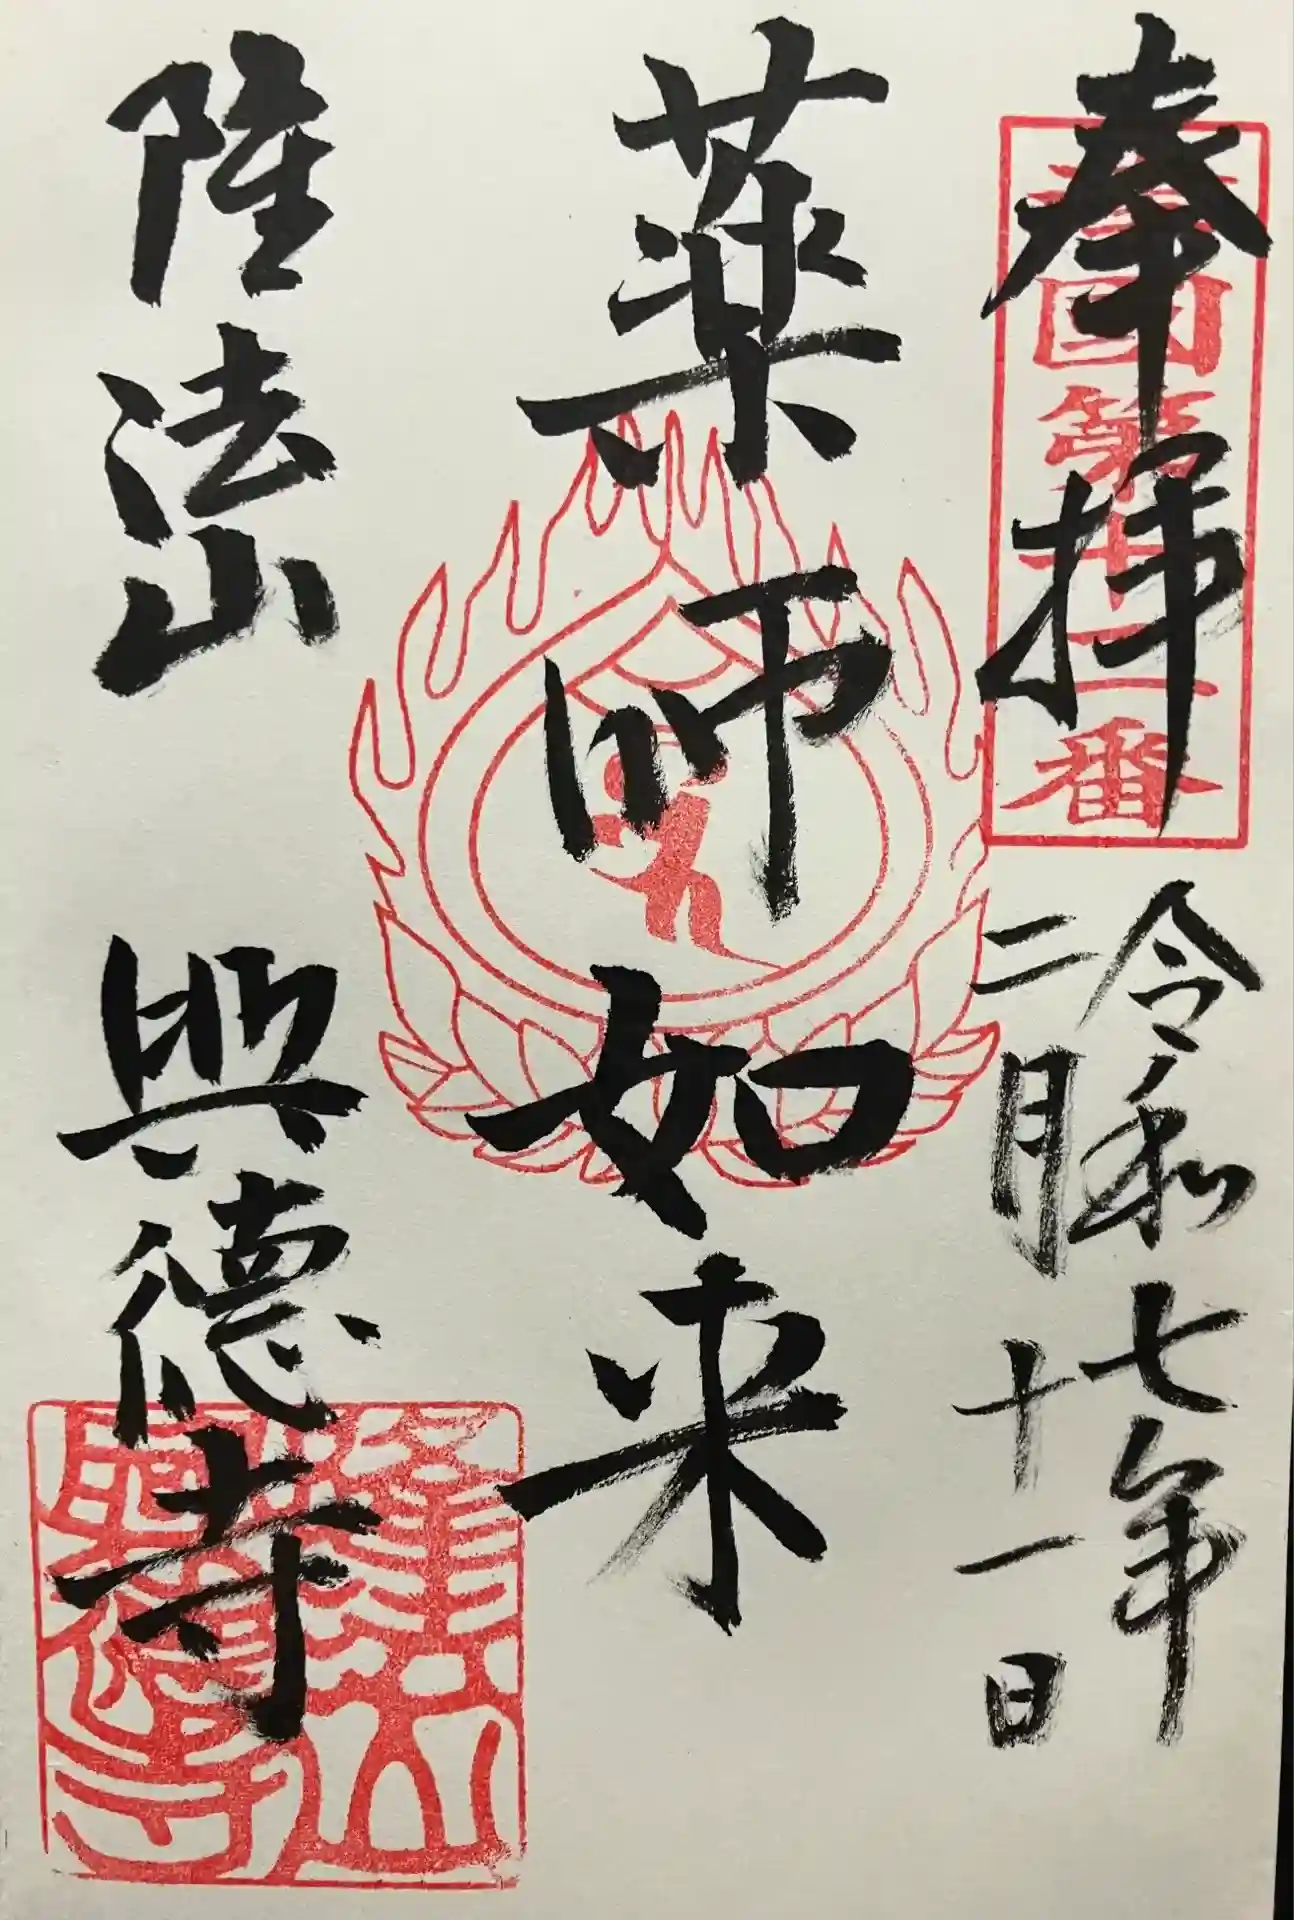 奉拝
令和七年
二月十一日
薬師如来
隆法山
興徳寺
國第十二番